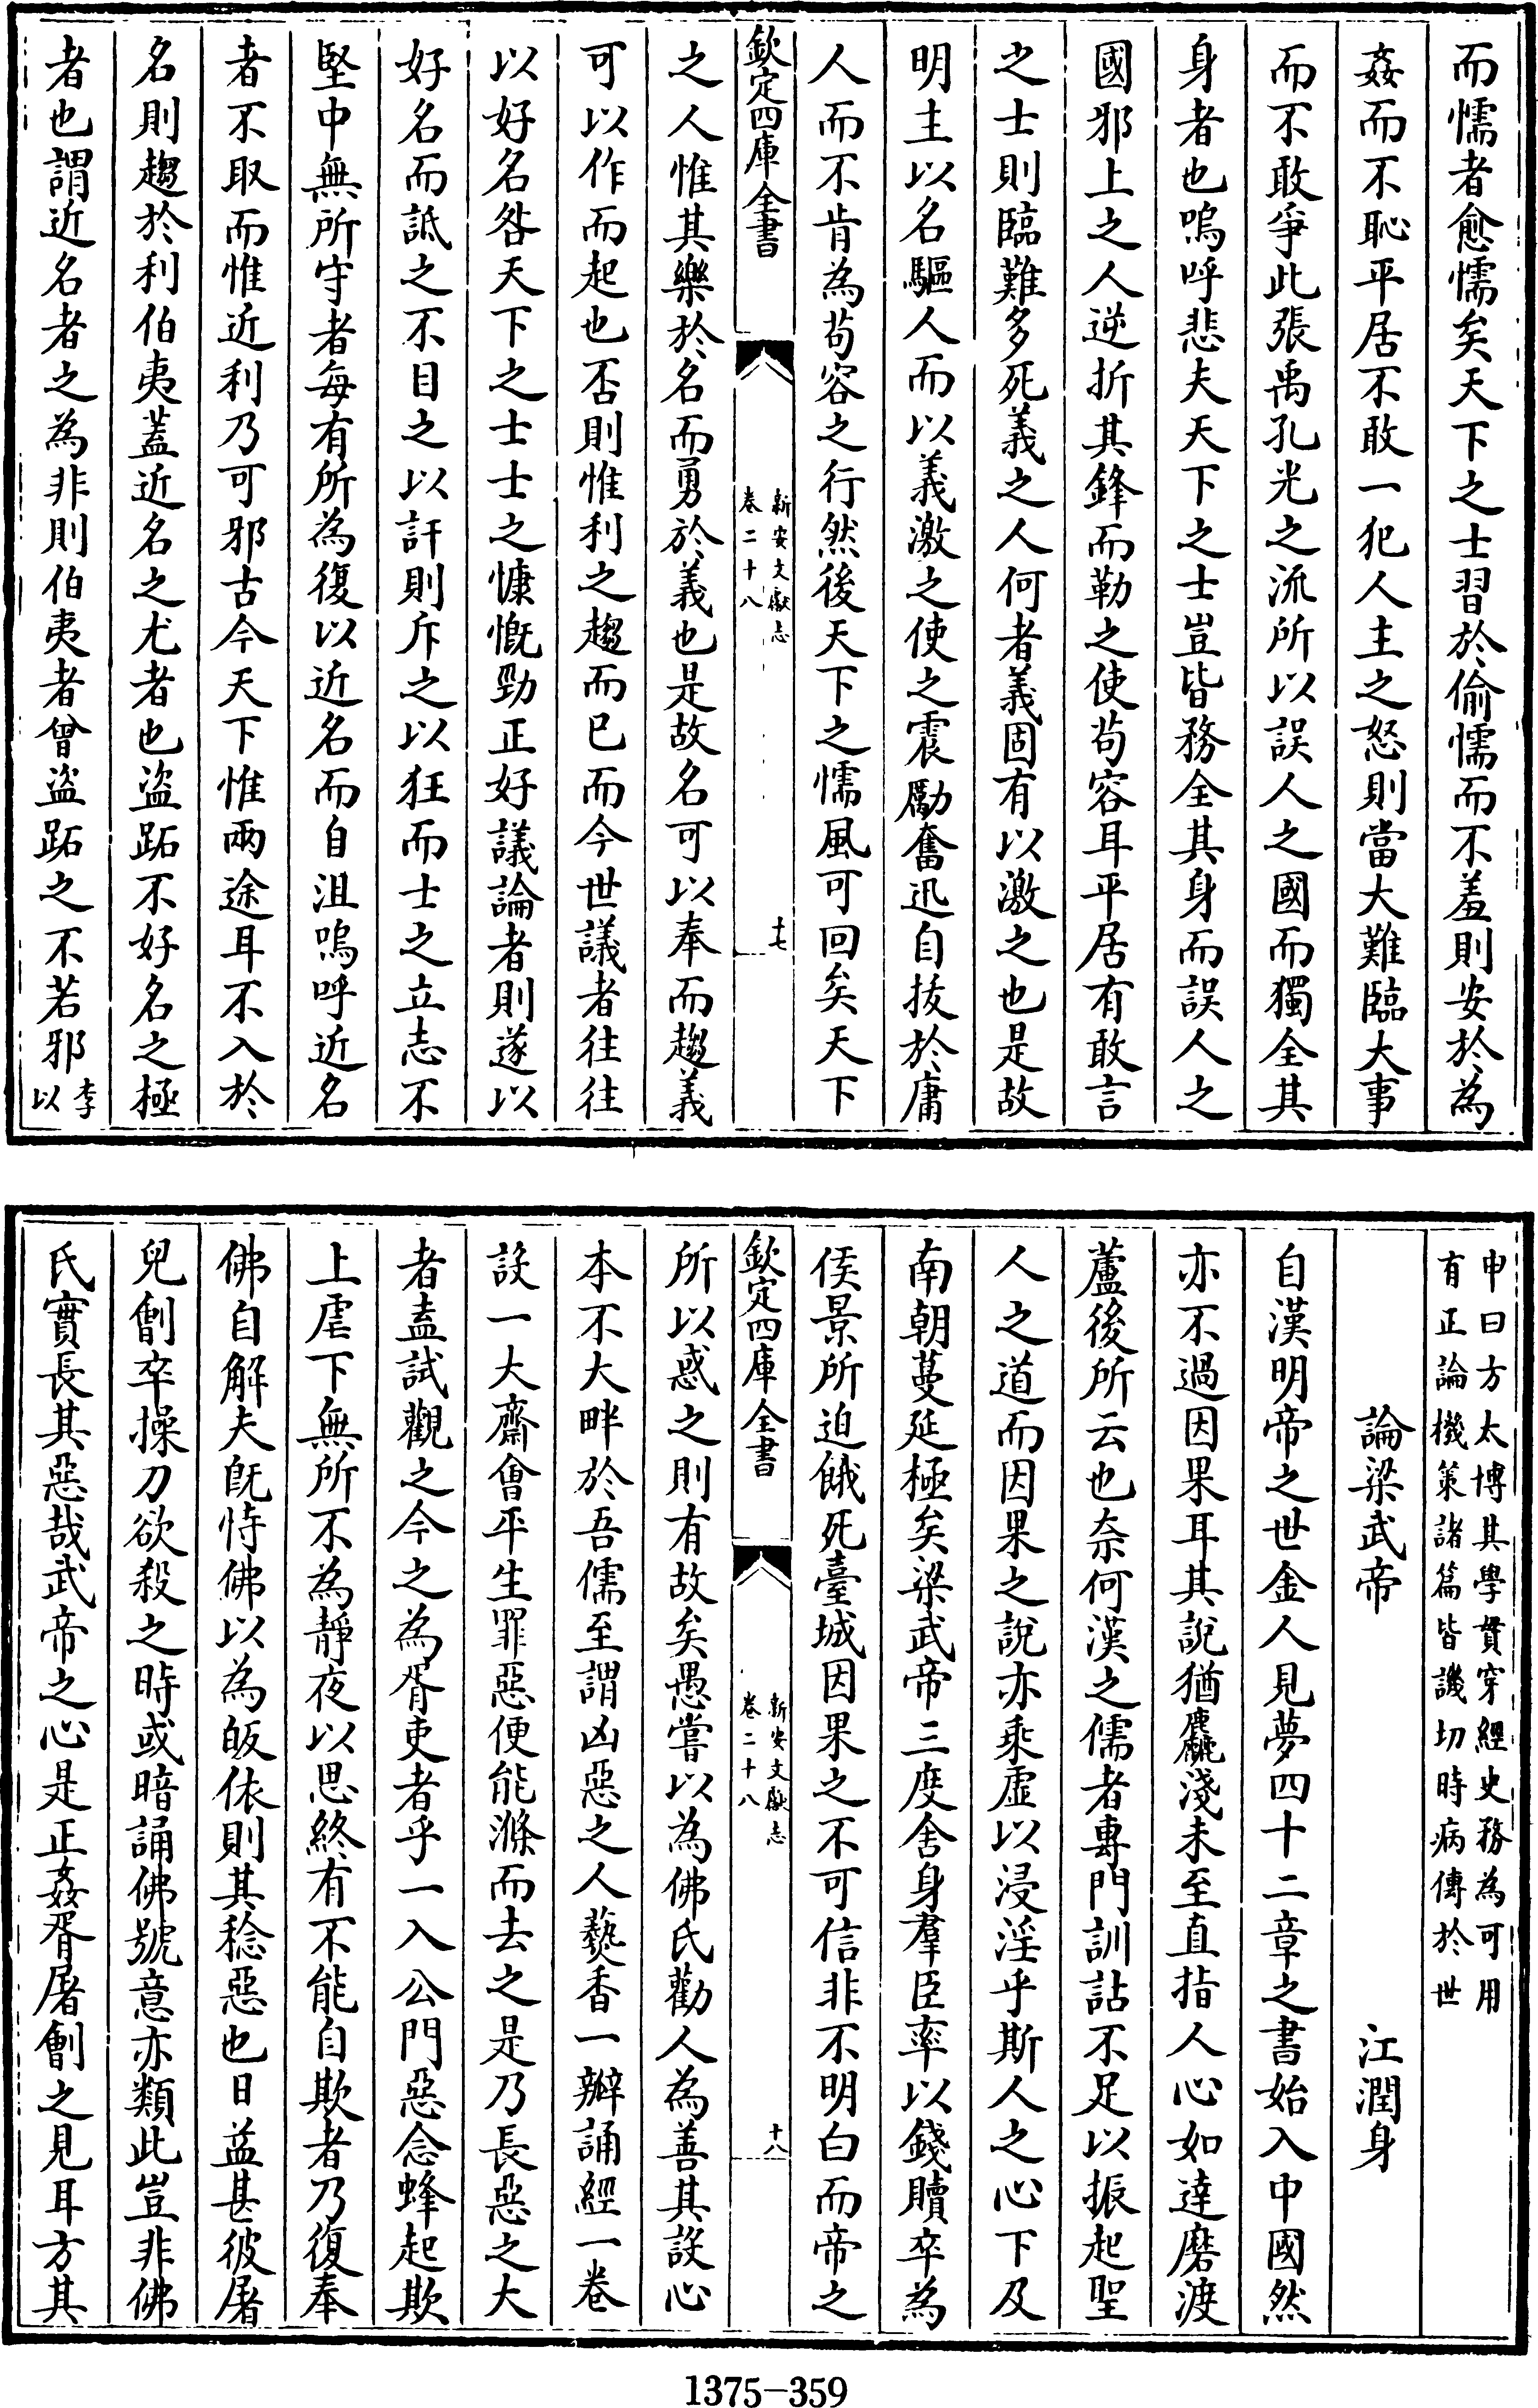 而懦者愈懦矣天下之士習於偷懦而不羞則安於為
姦而不恥平居不敢一犯人主之怒則當大難臨大事
而不敢爭此張禹孔光之流所以誤人之國而獨全其
身者也嗚呼悲夫天下之士豈皆務全其身而誤人之
國邪上之人逆折其鋒而勒之使茍容耳平居有敢言
之士則臨難多死義之人何者義固有以激之也是故
明主以名驅人而以義激之使之震勵奮迅自拔於庸
人而不肯為茍容之行然後天下之懦風可回矣天下
欽定四庫全書
新安文獻志
卷二十八
十七
之人惟其樂於名而勇於義也是故名可以奉而趨義
可以作而起也否則惟利之趨而已而今世議者往往
以好名咎天下之士士之慷慨勁正好議論者則遂以
好名而詆之不目之以訐則斥之以狂而士之立志不
堅中無所守者每有所為復以近名而自沮嗚呼近名
者不取而惟近利乃可邪古今天下惟兩途耳不入於
名則趨於利伯夷蓋近名之尤者也盜跖不好名之極
者也謂近名者之為非則伯夷者曾盜跖之不若邪
李
以
申曰方太博其學貫穿經史務為可用
有正論機策諸篇皆譏切時病傳於世
論梁武帝
江潤身
自漢明帝之世金人見夢四十二章之書始入中國然
亦不過因果耳其說猶麤淺未至直指人心如達磨渡
蘆後所云也奈何漢之儒者專門訓詁不足以振起聖
人之道而因果之說亦乘虛以浸淫乎斯人之心下及
南朝蔓延極矣梁武帝三度舍身羣臣率以錢贖卒為
侯景所迫餓死臺城因果之不可信非不明白而帝之
欽定四庫全書
新安文獻志
卷二十八
十八
所以惑之則有故矣愚嘗以為佛氏勸人為善其設心
本不大畔於吾儒至謂凶惡之人爇香一瓣誦經一卷
設一大齋會平生罪惡便能滌而去之是乃長惡之大
者盍試觀之今之為胥吏者乎一入公門惡念蜂起欺
上虐下無所不為靜夜以思終有不能自欺者乃復奉
佛自解夫既恃佛以為皈依則其稔惡也日益甚彼屠
兒劊卒操刀欲殺之時或暗誦佛號意亦類此豈非佛
氏實長其惡哉武帝之心是正姦胥屠劊之見耳方其
1375-359